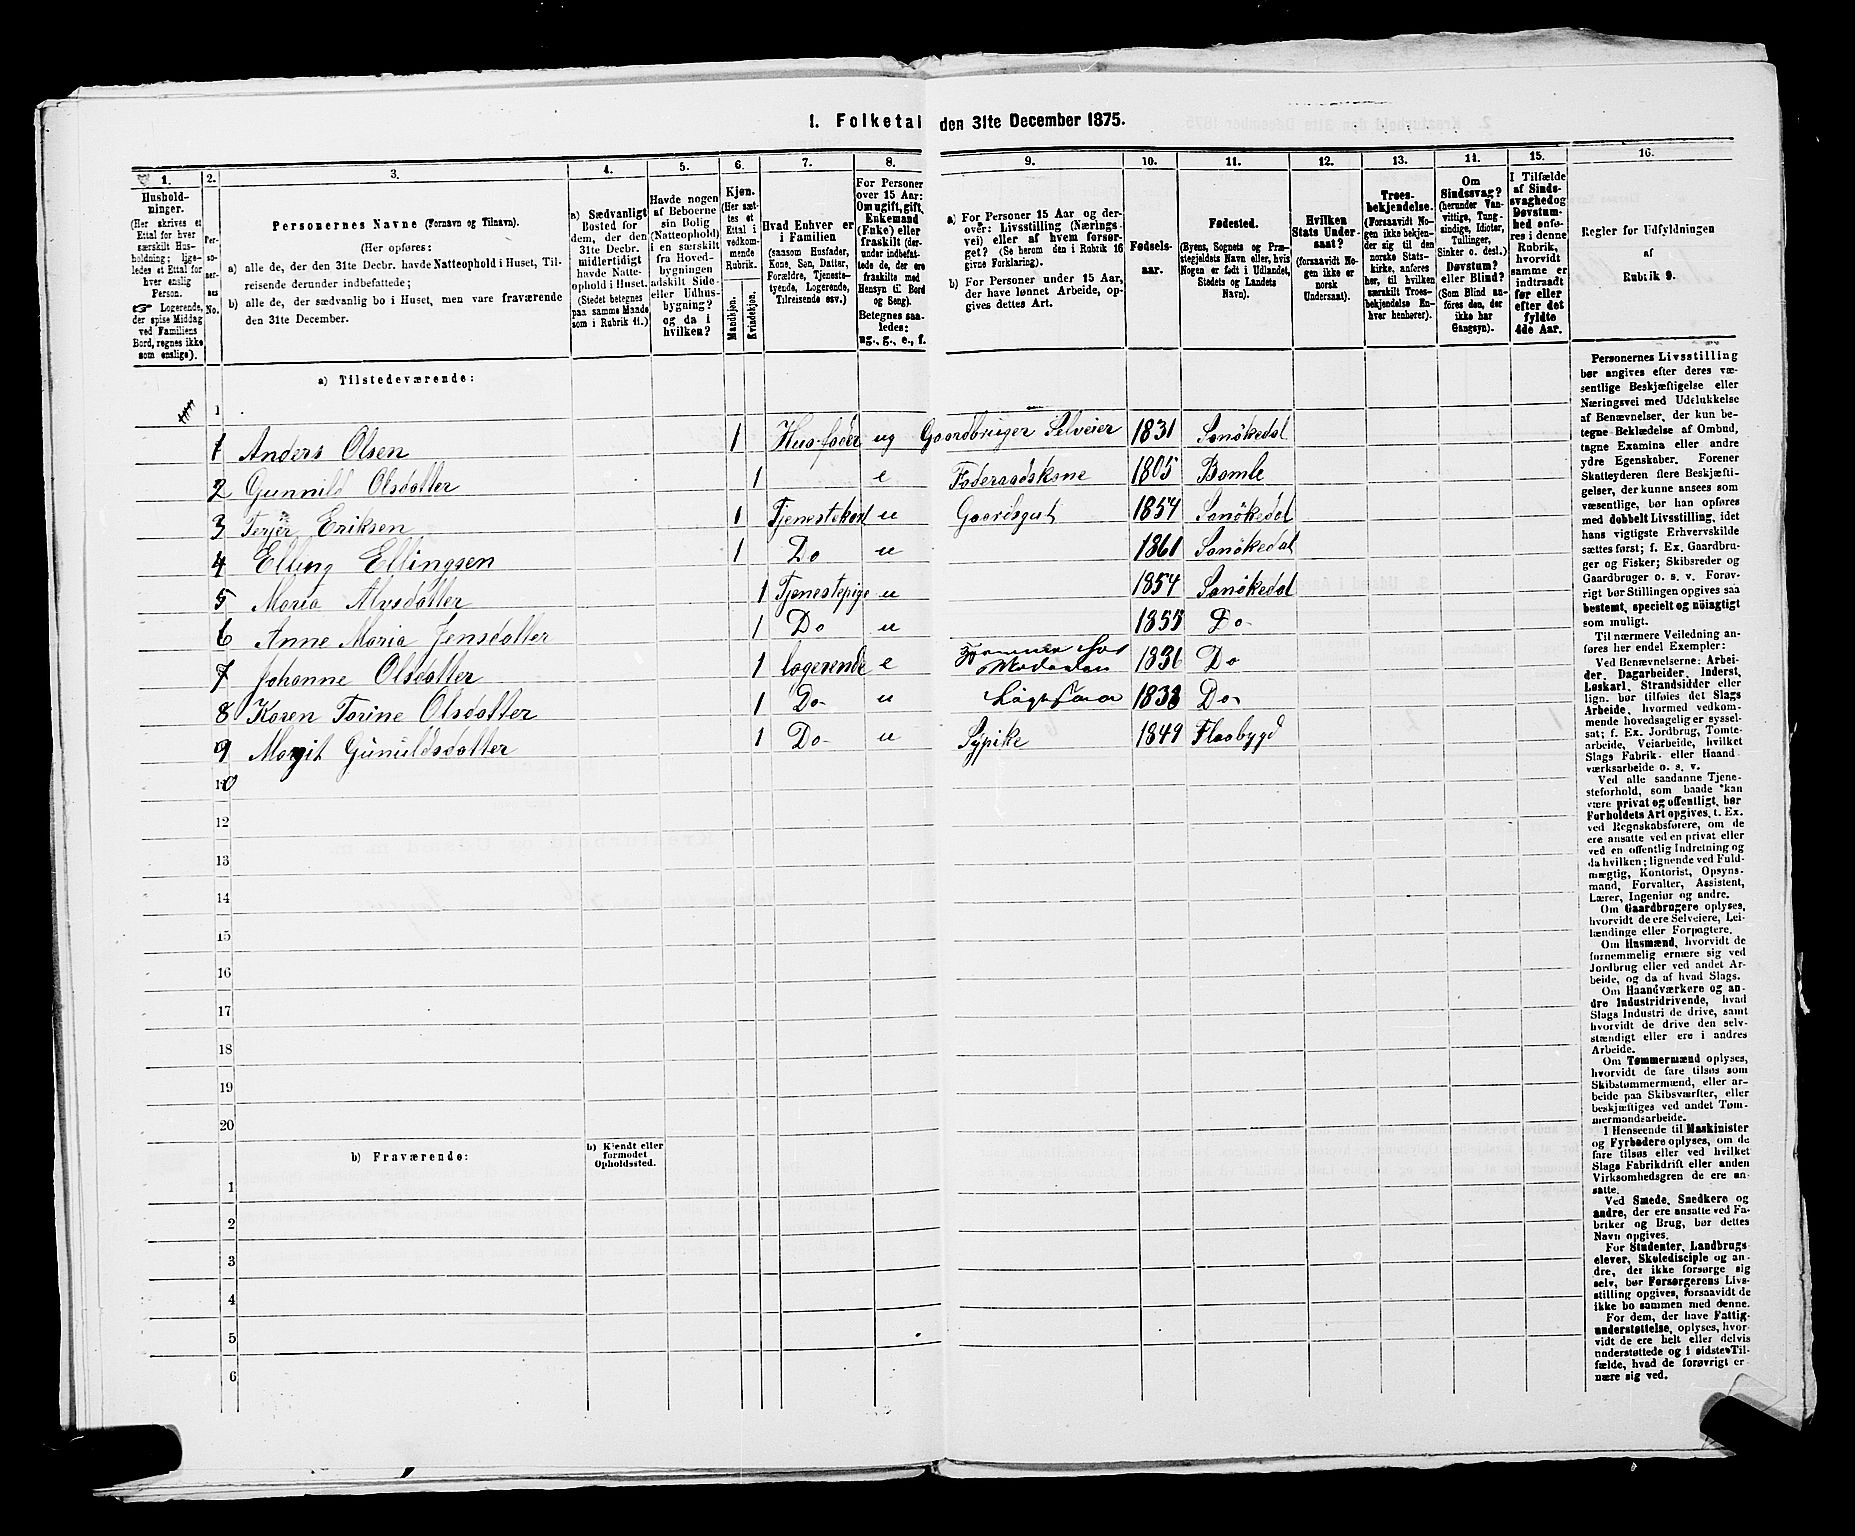 1. Folketal den 31te December 1875.
1. 2. 3. 4. 5. 6. 7. 8. 9. 10. 11. 12. 13. 14. 15. 16.
Hushold-
ninger.
(Her skrives et
Ettal for hver
særskilt Hus-
holdning; lige-
ledes et Ettal for
hver enslig
Person.
☞ Logerende,
der spise Middag
ved Familiens
Bord, regnes ikke
som enslige).
Per-
soner-
nes
No.
Personernes Navne (Fornavn og Tilnavn).
(Her opføres:
a) alle de, der den 31te Decbr. havde Natteophold i Huset, Til-
reisende derunder indbefattede;
b) alle de, der sædvanlig bo i Huset, men vare fraværende
den 31te December.
a) Sædvanligt
Bosted for
dem, der den
31te Decbr.
midlertidigt
havde Natte-
ophold i Huset.
(Stedet betegnes
paa samme Maade
som i Rubrik 11.)
Havde nogen
af Beboerne
sin Bolig
(Natteophold)
i en særskilt
fra Hoved-
bygningen
adskilt Side-
eller Udhus-
bygning?
og da i
hvilken?
Kjøn.
(Her sæt-
tes et
Ettal i
vedkom-
mende
Rubrik.
Mandkjøn.
Kvindekjøn.
Hvad Enhver er
i Familien
(saasom Husfader,
Kone, Søn, Datter,
Forældre, Tjeneste-
tyende, Logerende,
Tilreisende osv.)
For Personer
over 15 Aar:
Om ugift, gift,
Enkemand
(Enke) eller
fraskilt (der-
under indbefat-
tede de, der ere
fraskilte med
Hensyn til Bord
og Seng).
Betegnes saa-
ledes:
ug., g., e., f.
a) For Personer 15 Aar og der-
over: Livsstilling (Nærings-
vei) eller af hvem forsør-
get? (Se herom den i Rubrik 16
givne Forklaring).
b) For Personer under 15 Aar,
der have lønnet Arbeide, op-
gives dettes Art.
Fødsels-
aar.
Fødested.
(Byens, Sognets og Præ-
stegjeldets Navn eller, hvis
Nogen er født i Udlandet,
Stedets og Landets
Navn).
Hvilken
Stats Under-
saat?
(forsaavidt No-
gen ikke er
norsk
Undersaat).
Troes-
bekjendelse.
(Forsaavidt No-
gen ikke bekjen-
der sig til den
norske Stats-
kirke, anføres
her, til hvilken
særskilt Troes-
bekjendelse En-
hver henhører).
Om
Sindssvag?
(herunder Van-
vittige, Tung-
sindige, Idioter,
Tullinger,
Sinker o. desl.)
Døvstum?
eller Blind?
(Som Blind an-
føres den, der
ikke har
Gangsyn).
I Tilfælde
af Sinds-
svaghed og
Døvstum-
hed anfø-
res i denne
Rubrik,
hvorvidt
samme er
indtraadt
før eller
efter det
fyldte
4de Aar.
Regler for Udfyldningen
af
Rubrik 9.
a) Tilstedeværende:
1
1 Anders Olsen 1 Husfader ug Gaardbruger Selveier 1831 Sanökedal
2 Gunnild Olsdatter 1 e Foderaadskone 1805 Bamle
3 Terjer Eriksen 1 Tjenestekarl u Gaardsgut 1854 Sanökedal
4 Elling Ellingsen 1 Do u 1861 Sanökedal
5 Maria Alvsdatter 1 Tjenestepige u 1854 Sanökedal
6 Anne Maria Jensdatter 1 Do u 1855 Do
7 Johanne Olsdatter 1 logerende e 1836 Do
8 Karen Torine Olsdatter 1 Do u 1838 Do
9 Margit Gunuldsdatter 1 Do u Sypike 1849 Flaabygd
10
12
13
14
15
16
17
18
19
20
b) Fraværende:
b) Kjendt eller
formodet
Opholdssted.
1
2
3
4
5
6
Personernes Livsstilling
bør angives efter deres væ-
sentlige Beskjæftigelse eller
Næringsvei med Udelukkelse
af Benævnelser, der kun be-
tegne Beklædelse af Ombud,
tagne Examina eller andre
ydre Egenskaber. Forener
Skatteyderen flere Beskjæfti-
gelser, der kunne ansees som
væsentlige, bør han opføres
med dobbelt Livsstilling, idet
hans vigtigste Erhvervskilde
sættes først; f. Ex. Gaardbru-
ger og Fisker; Skibsreder og
Gaardbruger o. s. v. Forøv-
rigt bør Stillingen opgives saa
bestemt, specielt og nöiagtigt
som muligt.
Til nærmere Veiledning an-
føres her endel Exempler:
Ved Benævnelserne: Arbei-
der, Dagarbeider, Inderst,
Løskarl, Strandsidder eller
lign. bør tilføies det Slags
Arbeide, hvormed vedkom-
mende hovedsagelig er syssel-
sat; f. Ex. Jordbrug, Tomte-
arbeide, Veiarbeide, hvilket
Slags Fabrik- eller Haand-
værksarbeide o. s. v.
Ved alle saadanne Tjene-
steforhold, som baade kan
være privat og offentligt, bør
Forholdets Art opgives, t. Ex.
ved Regnskabsførere, om de
ere ansatte ved en privat eller
ved en offentlig Indretning og
da hvilken; lignende ved Fuld-
mægtig, Kontorist, Opsyns-
mand, Forvalter, Assistent,
Lærer, Ingeniør og andre.
Om Gaardbrugere oplyses,
hvorvidt de ere Selveiere, Lei-
lændinge eller Forpagtere.
Om Husmænd, hvorvidt de
fornemmelig ernære sig ved
Jordbrug eller ved andet Ar-
beide, og da af hvad Slags.
Om Haandværkere og an-
dre Industridrivende, hvad
Slags Industri de drive, samt
hvorvidt de drive den selv-
stændigt eller ere i andres
Arbeide.
Om Tømmermænd oplyses,
hvorvidt de fare tilsøs som
Skibstømmermænd, eller ar-
beide paa Skibsværfter, eller
beskjæftiges ved andet Tøm-
mermandsarbeide.
I Henseende til Maskinister
og Fyrbødere oplyses, om de
fare tilsøs eller ved hvilket
Slags Fabrikdrift eller anden
Virksomhedsgren de ere an-
satte.
Ved Smede, Snedkere og
andre, der ere ansatte ved Fa-
briker og Brug, bør dettes
Navn opgives.
For Studenter, Landbrugs-
elever, Skoledisciple og an-
dre, der ikke forsørge sig
selv, bør Forsørgerens Livs-
stilling opgives, forsaavidt de
ikke bo sammen med denne.
For dem, der have Fattig-
understøttelse, oplyses, hvor-
vidt de ere helt eller delvis
understøttede og i sidste Til-
fælde, hvad de forøvrigt er-
nære sig ved.